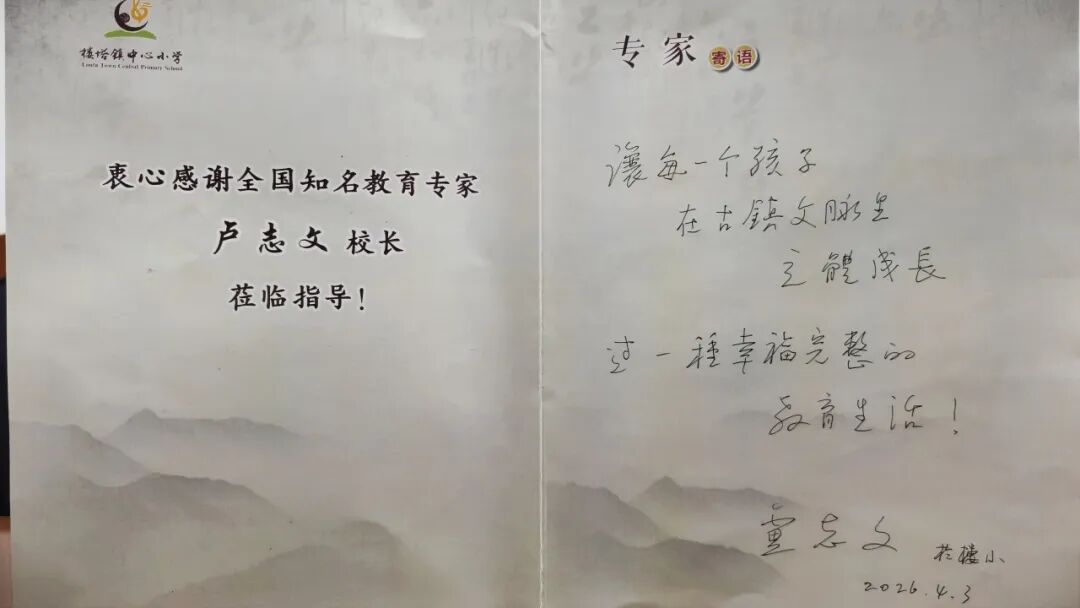 楼塔镇中心小学
Louta Town Central Primary School
衷心感谢全国知名教育专家
卢志文 校长
莅临指导!
专家寄语
讓每一个孩子
在古鎮文脉里
立體成長
过一種幸福完整的
教育生活!
盧志文 於樓小
2026.4.3